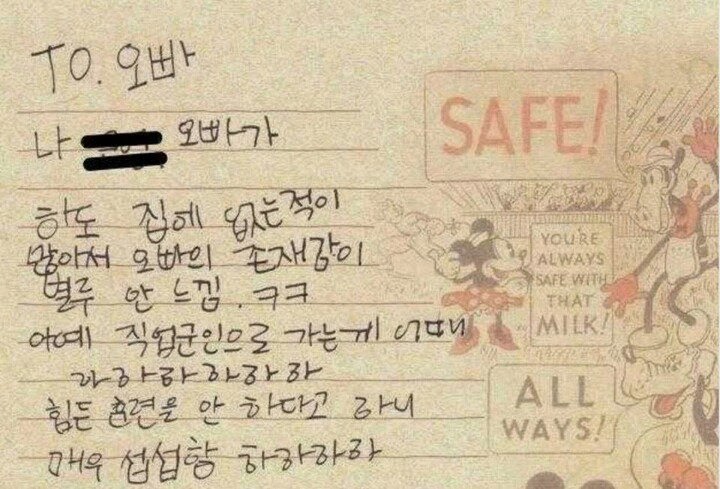 TO. 오빠
나 오빠가
하도 집에 없는적이
많아서 오빠의 존재감이
별루 안 느낌. ㅋㅋ
아예 직업군인으로 가는게 어떠니
과하하하하하
힘든 훈련을 안 하다고 하니
매우 섭섭항 하하하하
SAFE!
YOU'RE
ALWAYS
SAFE WITH
THAT
MILK!
ALL
WAYS!